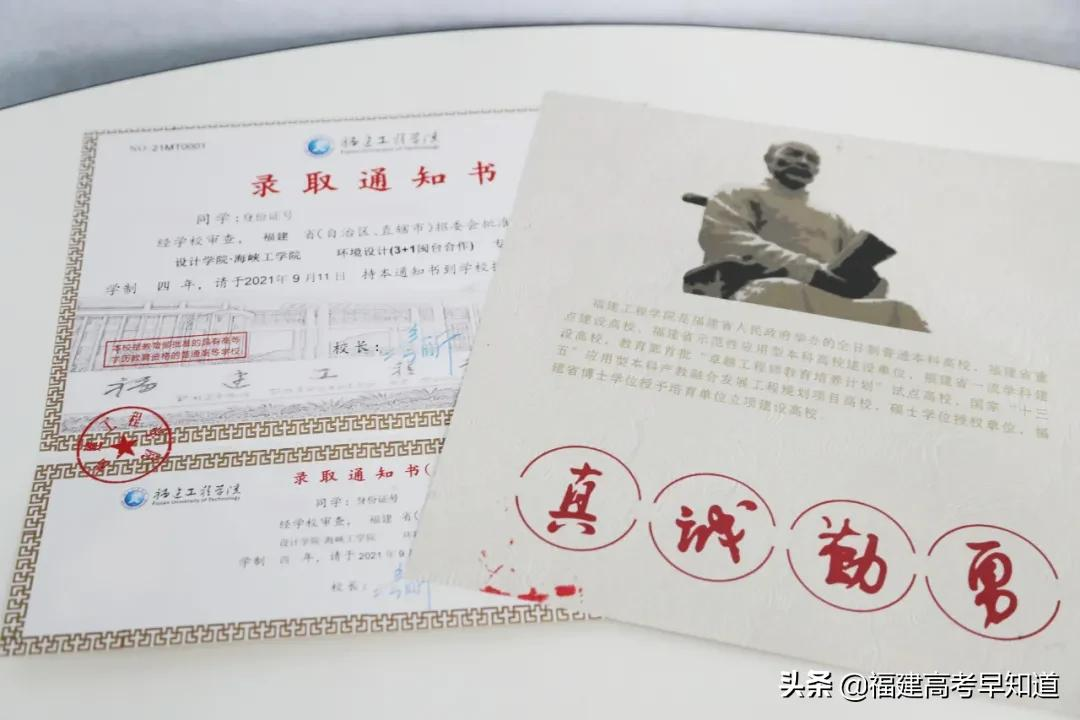 NO. 21MT0001
福建工程学院
Fujian University of Technology
录取通知书
同学：身份证号
经学校审查， 福建 省(自治区、直辖市)招委会批准
设计学院·海峡工学院 环境设计(3+1闽台合作) 专
学制 四 年，请于2021年9月11日 持本通知书到学校
本校是教育部批准的具有高等
学历教育资格的普通高等学校
校长：
福建工程
福建工程学院
Fujian University of Technology
录取通知书(
同学：身份证号
经学校审查， 福建 省(
设计学院·海峡工学院 环
学制 四 年，请于2021年9月
校长：
福建工程学院是福建省人民政府举办的全日制普通本科高校，福建省重
点建设高校、福建省示范性应用型本科高校建设单位，福建省一流学科建
设高校，教育部首批“卓越工程师教育培养计划”试点高校，国家“十三
五”应用型本科产教融合发展工程规划项目高校，硕士学位授权单位，福
建省博士学位授予培育单位立项建设高校。
真诚勤勇
头条 @福建高考早知道